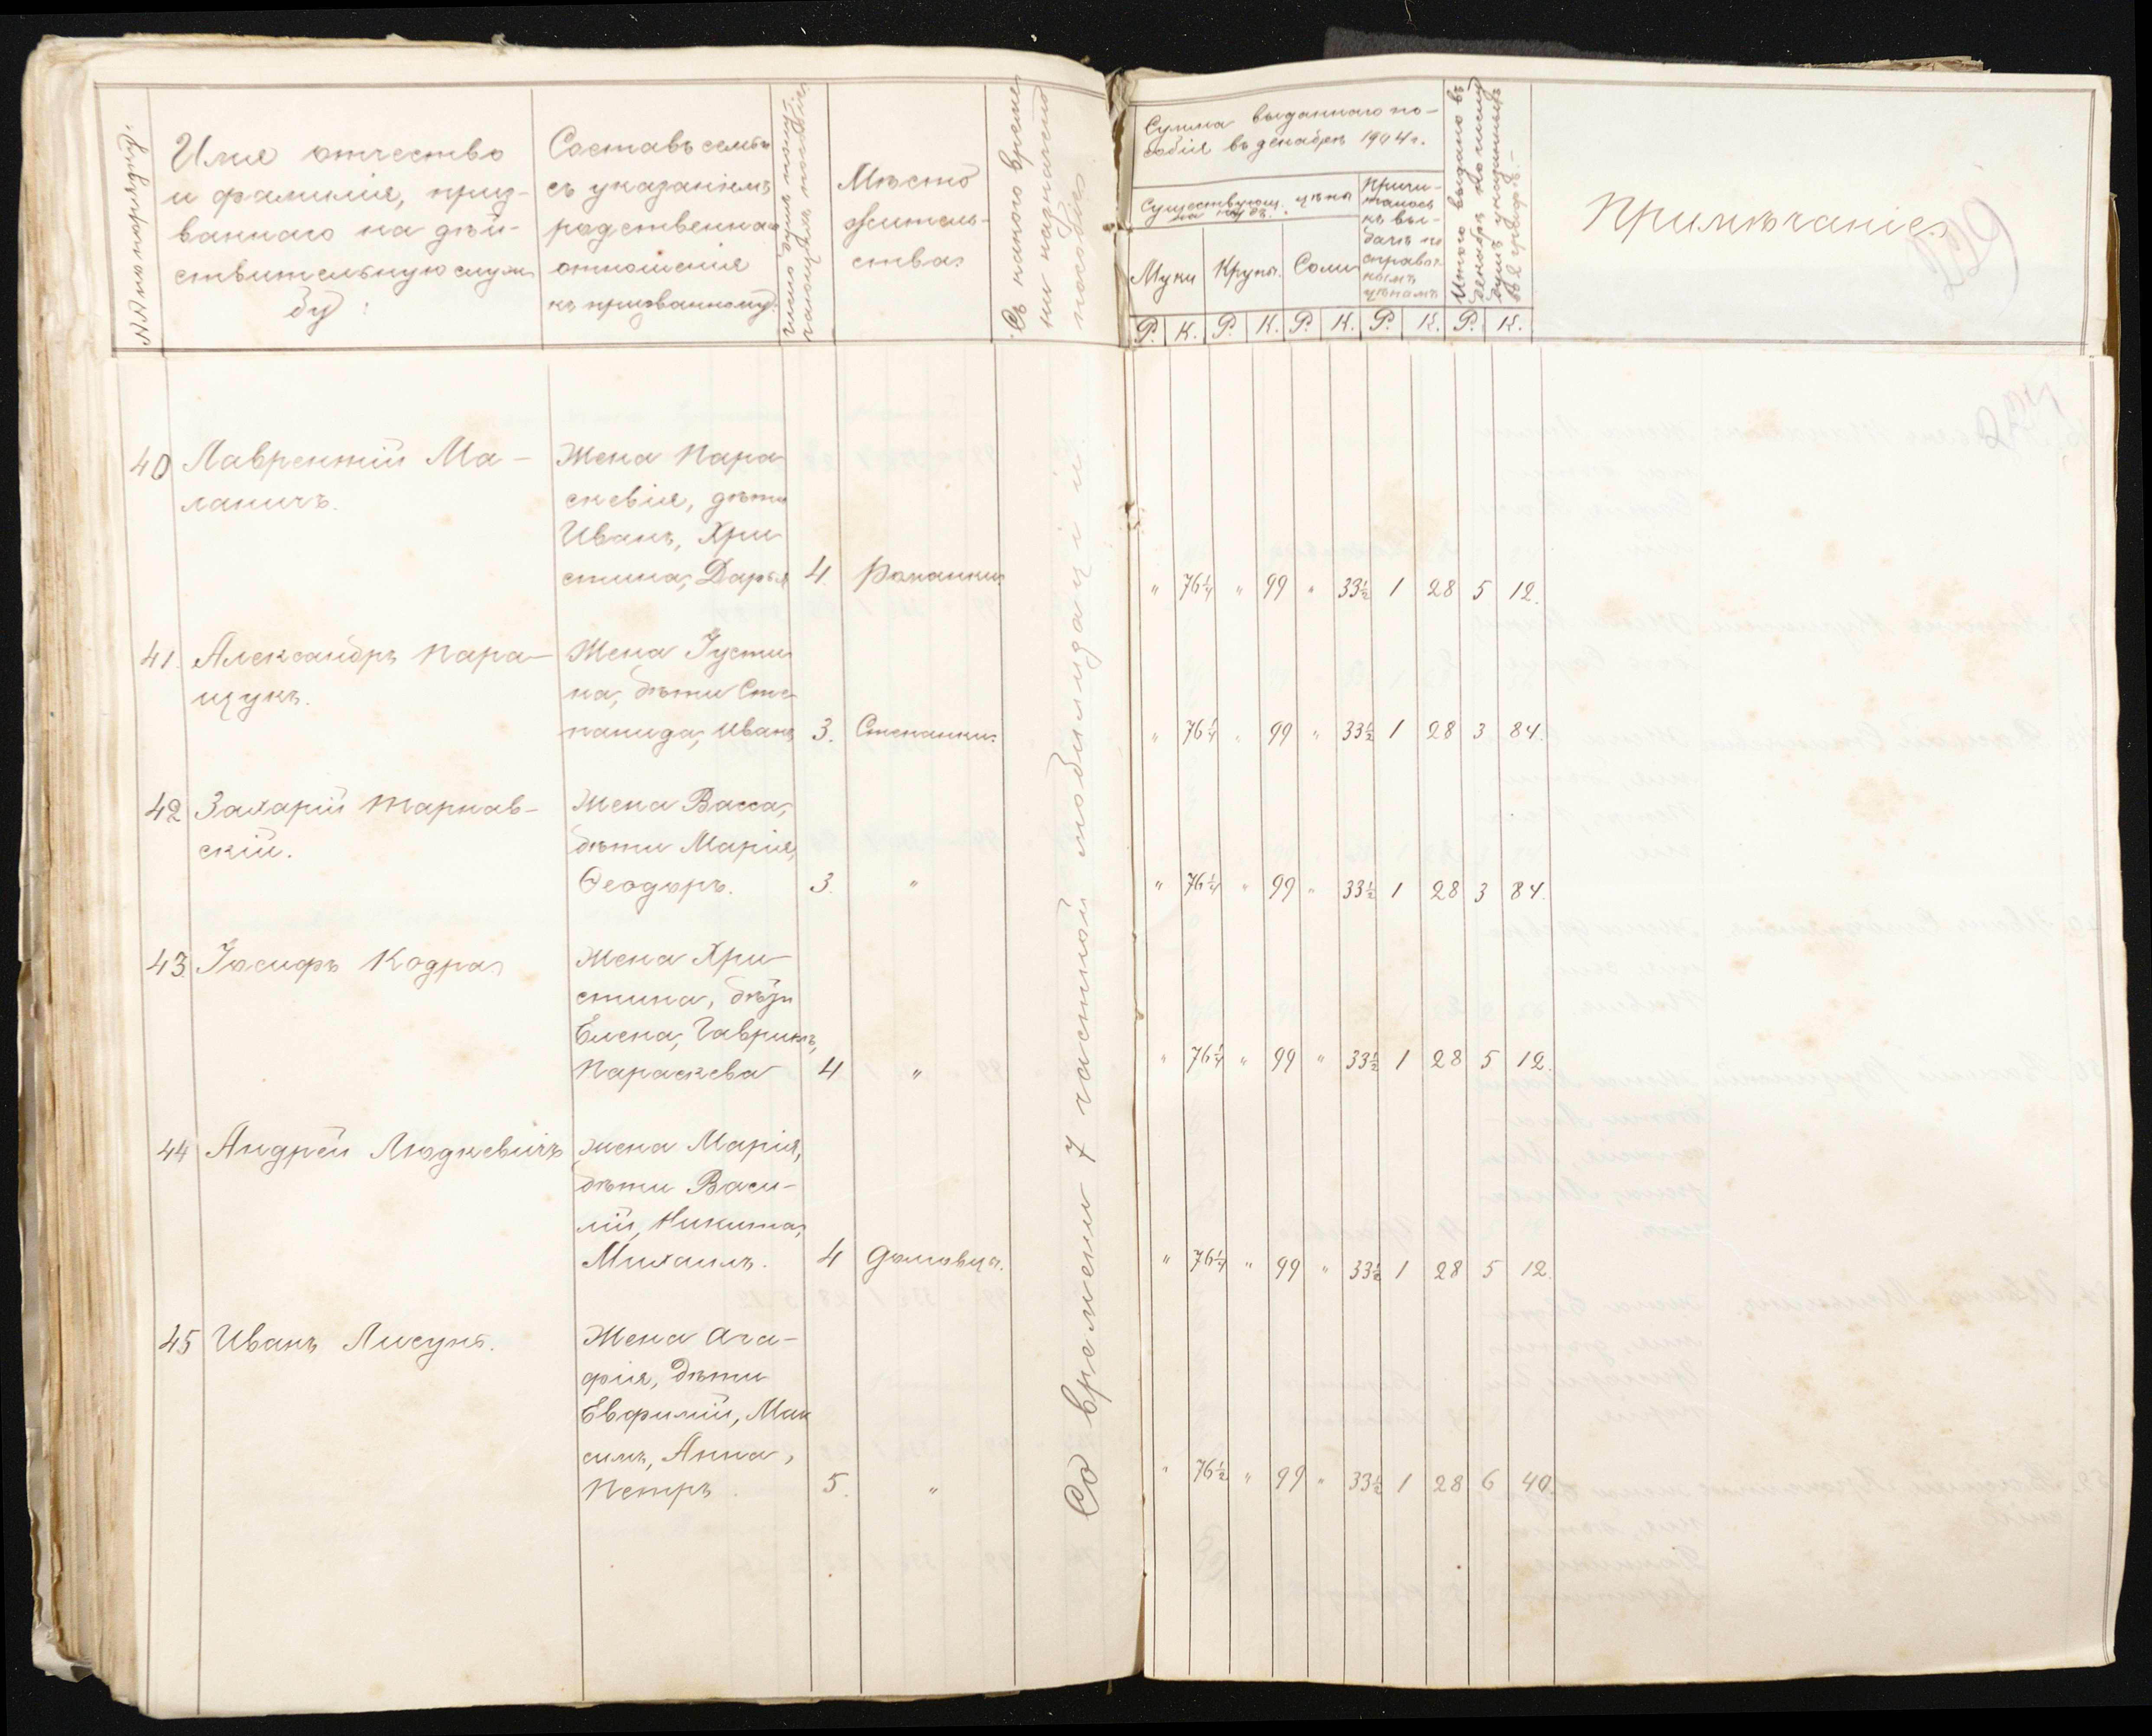 №№ по порядку.
Имя отчество
и фамилія, приз-
ваннаго на дѣй-
ствительную служ
бу:
Составъ семьи
съ указаніемъ
родственнаго
отношенія
къ призванному.
Число душъ полу-
чающихъ пособіе
Мѣсто
житель-
ства.
Съ какого време
ни назначено
пособіе
Сумма выданнаго по-
собія въ декабрѣ 1904 г.
Существующ. цѣна
на пудъ.
Муки
Крупы.
Соли
Причи-
талось
къ вы-
дачѣ по
справоч
нымъ
цѣнамъ
Итого выдано въ
декабрѣ по числу
душъ указаннымъ
въ графѣ.
Примѣчаніе.
Р. К. Р. К. Р. К. Р. К. Р. К.
40 Лаврентій Ма-
ланичъ.
Жена Пара
скевія, дѣти
Иванъ, Хри
стина, Дарья 4. Романки. " 76¼ " 99 " 33½ 1 28 5 12.
41. Александръ Пара-
щукъ.
Жена Іусти
на, дѣти Сте-
панида, Иванъ 3. Степанки. " 76¼ " 99 " 33½ 1 28 3 84.
42 Захарій Тарнав-
скій.
Жена Васса,
дѣти Марія,
Ѳеодоръ. 3. " " 76¼ " 99 " 33½ 1 28 3 84.
43. Іосифъ Кодра
Жена Хри-
стина, дѣти
Елена, Гавріилъ,
Параскева 4 " " 76¼ " 99 " 33½ 1 28 5 12.
44 Андрей Людкевичъ
жена Марія,
дѣти Васи-
лій, Никита,
Михаилъ. 4 " 76¼ " 99 " 33½ 1 28 5 12.
45 Иванъ Лисунъ.
Жена Ага-
фія, дѣти
Евфимій, Мак
симъ, Анна,
Петръ. 5. " " 76½ " 99 " 33½ 1 28 6 40.
Со времени 7 частной мобилизаціи